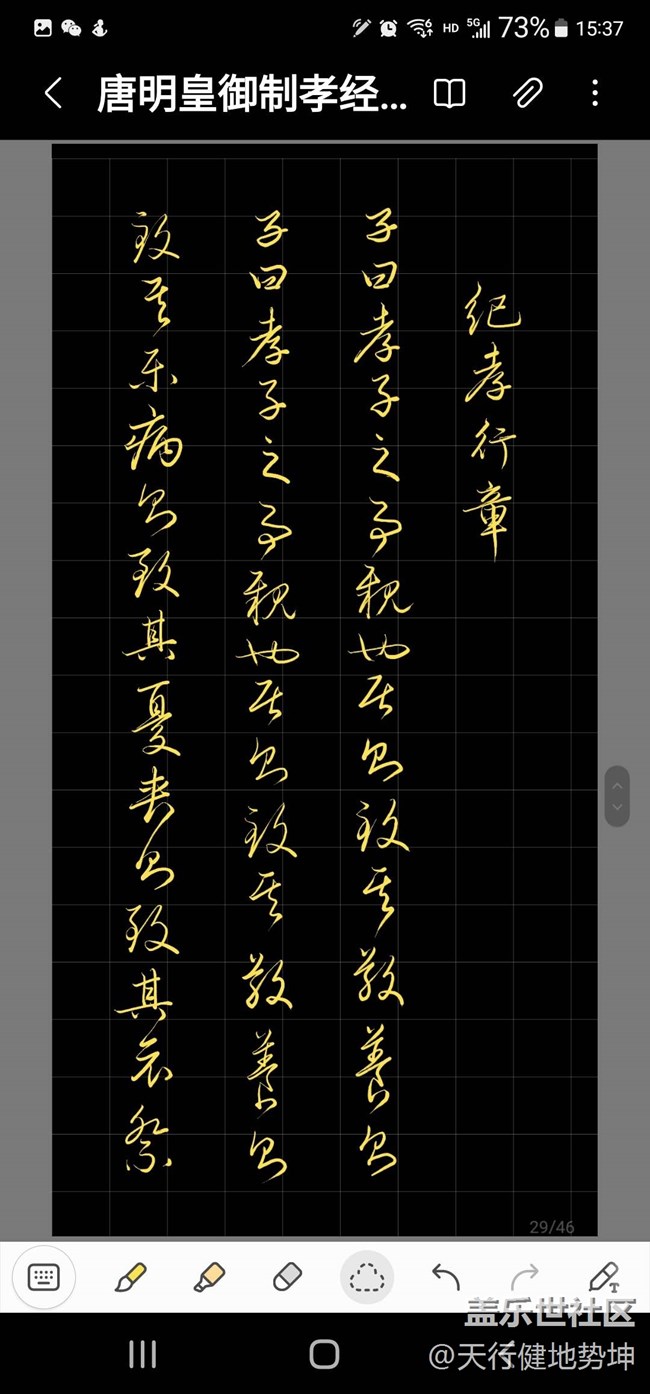 73% 15:37
HD 5G
唐明皇御制孝经...
纪孝行章
子曰孝子之事親也居则致其敬養则
子曰孝子之事親也居则致其敬養则
致其乐病则致其憂丧则致其哀祭
29/46
盖乐世社区
@天行健地势坤